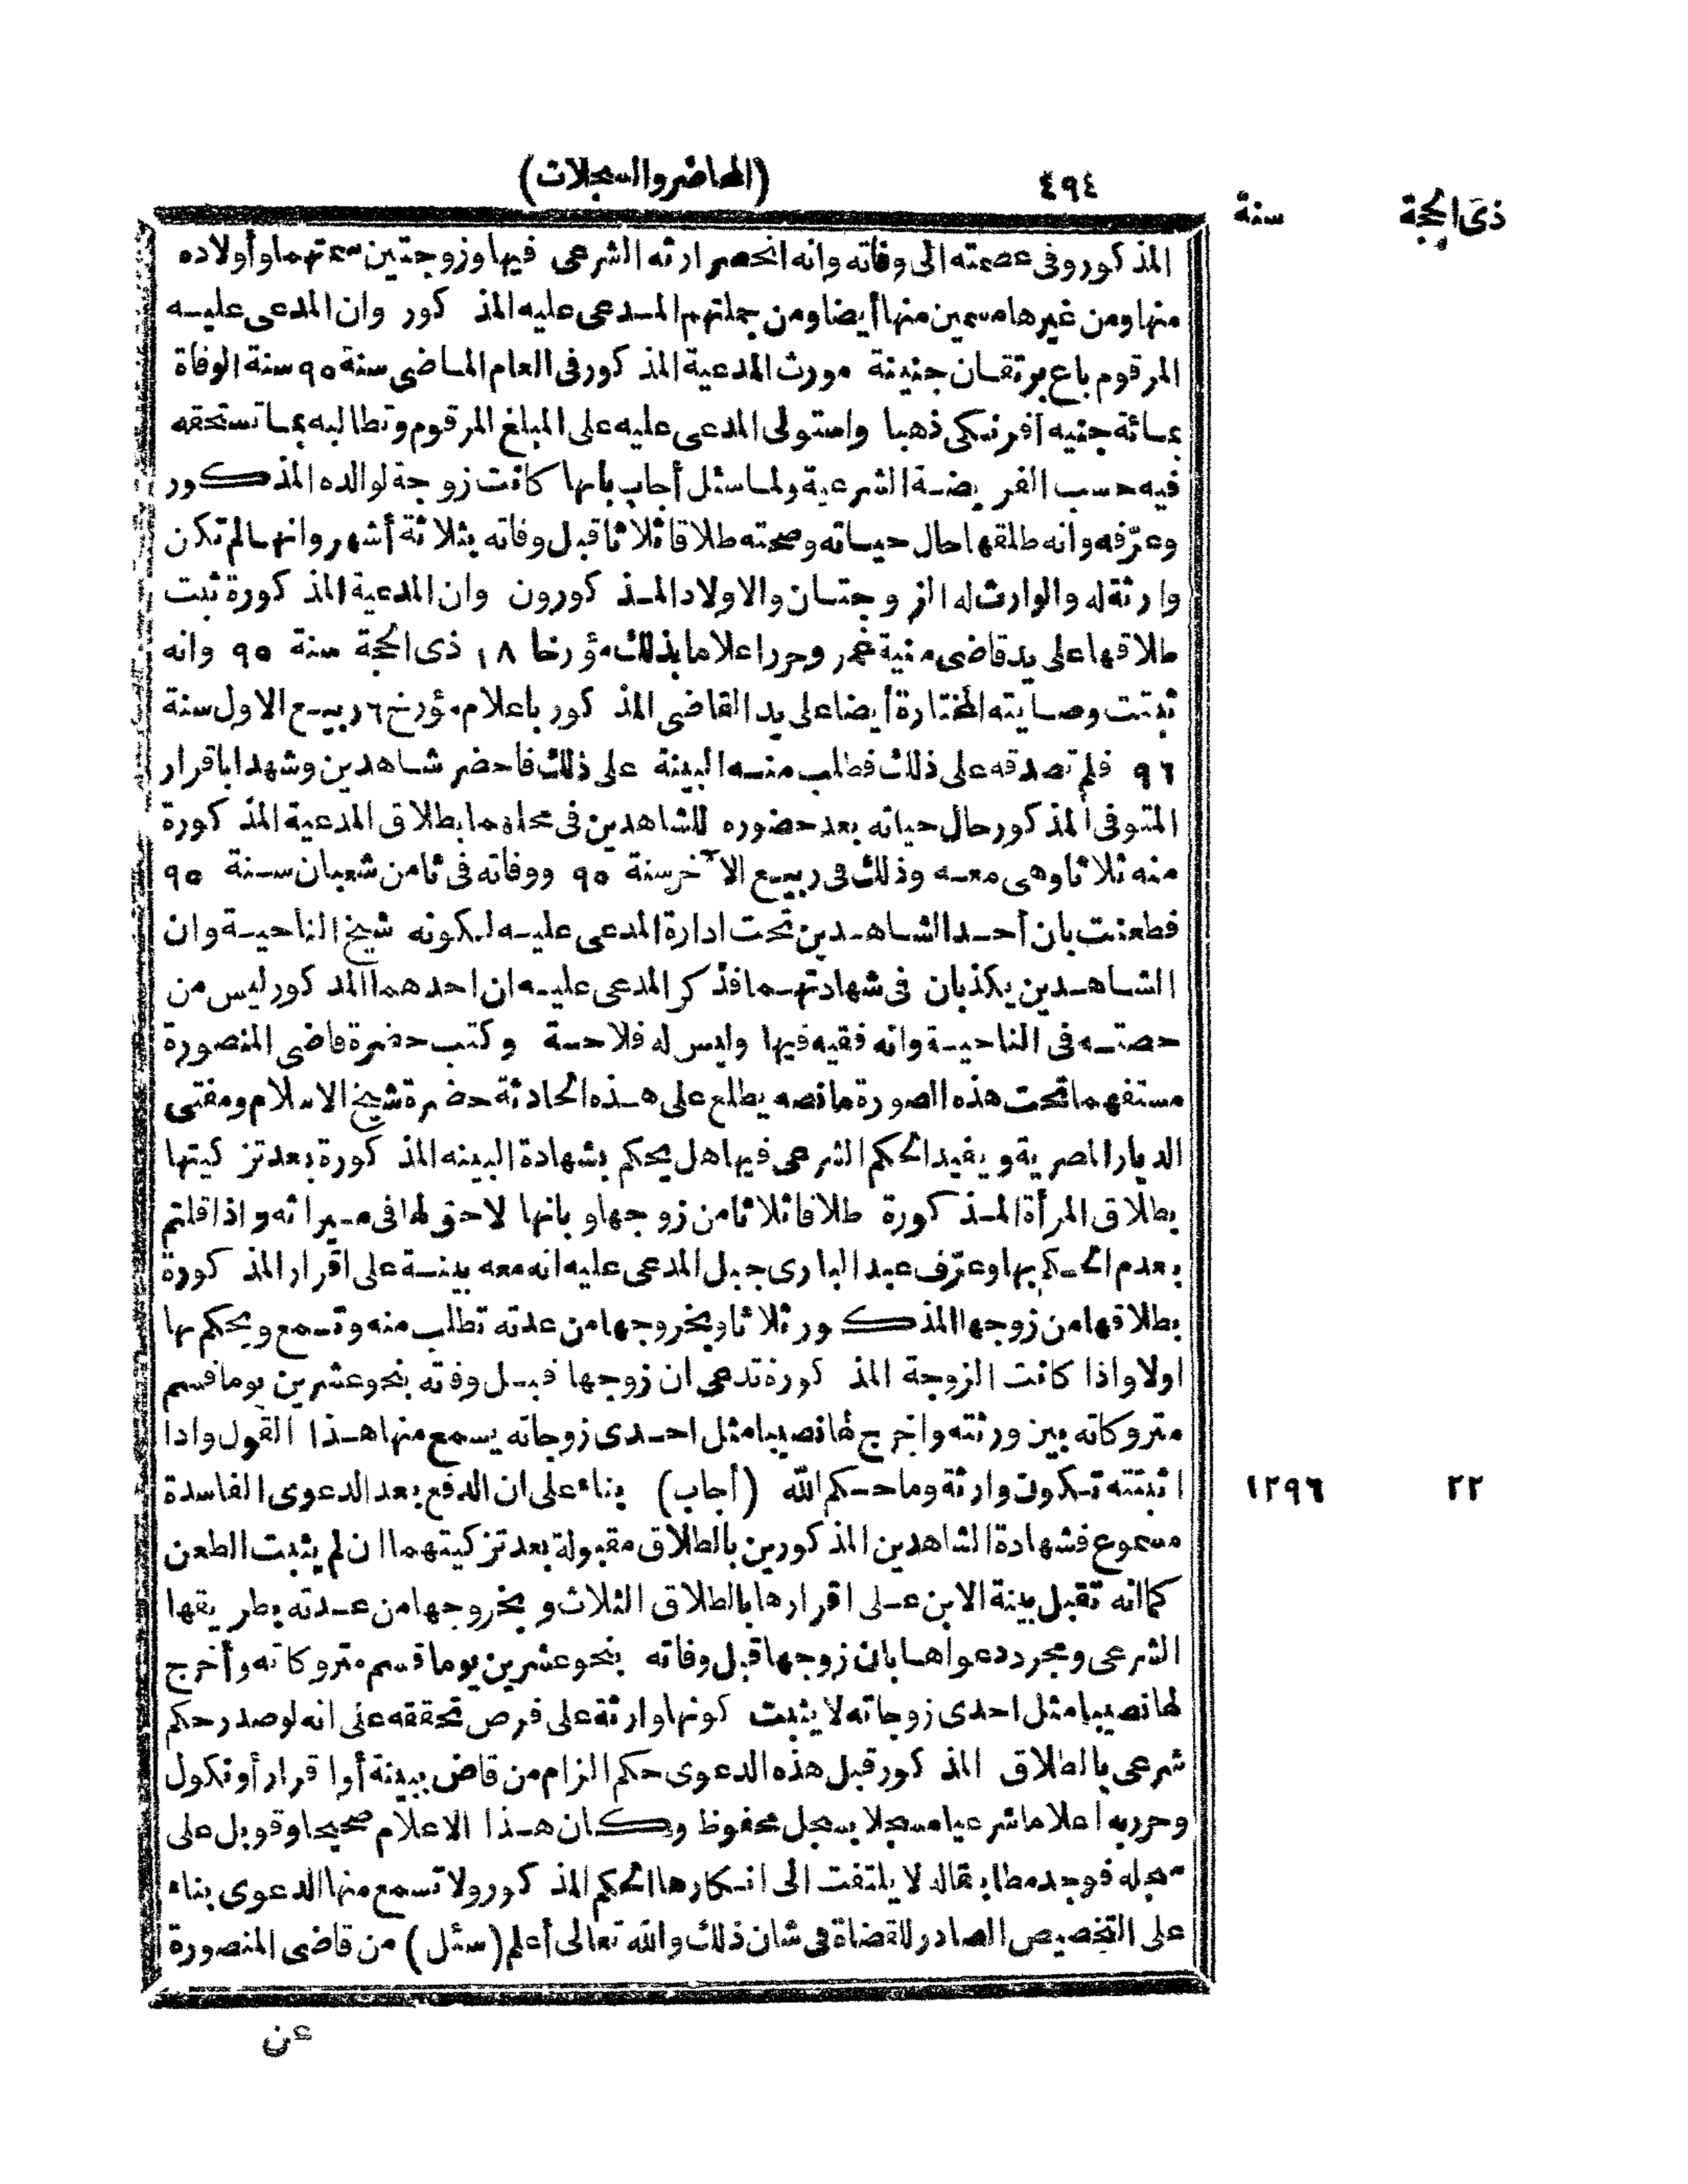 ٤٩٤
(المحاضر والسجلات)
ذى الحجة
سنة
المذكور وفى عصمته الى وفاته وانه انحصر ارثه الشرعى فيها وزوجتين سمتهما وأولاده
منها ومن غيرها مسمين منها أيضا ومن جملتهم المدعى عليه المذكور وان المدعى عليه
المرقوم باع برتقان جنينة مورث المدعية المذكور فى العام الماضى سنة ٩٥ سنة الوفاة
بمائة جنيه أفرنكى ذهبا واستولى المدعى عليه على المبلغ المرقوم وتطالبه بما تستحقه
فيه حسب الفريضة الشرعية ولما سئل أجاب بأنها كانت زوجة لوالده المذكور
وعرّفه وانه طلقها حال حياته وصحته طلاقا ثلاثا قبل وفاته بثلاثة أشهر وانها لم تكن
وارثة له والوارث له الزوجتان والاولاد المذكورون وان المدعية المذكورة ثبت
طلاقها على يد قاضى منية غمر وحرر اعلاما بذلك مؤرخا ١٨ ذى الحجة سنة ٩٥ وانه
ثبتت وصايته المختارة أيضا على يد القاضى المذكور باعلام مؤرخ ٦ ربيع الاول سنة
٩٦ فلم تصدقه على ذلك فطلب منه البينة على ذلك فاحضر شاهدين وشهدا باقرار
المتوفى المذكور حال حياته بعد حضوره للشاهدين فى محلهما بطلاق المدعية المذكورة
منه ثلاثا وهى معه وذلك فى ربيع الآخر سنة ٩٥ ووفاته فى ثامن شعبان سنة ٩٥
فطعنت بان أحد الشاهدين تحت ادارة المدعى عليه لكونه شيخ الناحية وان
الشاهدين يكذبان فى شهادتهما فذكر المدعى عليه ان احدهما المذكور ليس من
حصته فى الناحية وانه فقيه فيها وليس له فلاحة وكتب حضرة قاضى المنصورة
مستفهما تحت هذه الصورة ما نصه يطلع على هذه الحادثة حضرة شيخ الاسلام ومفتى
الديار المصرية ويفيد الحكم الشرعى فيها هل يحكم بشهادة البينه المذكورة بعد تزكيتها
بطلاق المرأة المذكورة طلاقا ثلاثا من زوجها وبانها لا حق لها فى ميراثه واذا قلتم
بعدم الحكم بها وعرّف عبد البارى جبل المدعى عليه انه معه بينة على اقرار المذكورة
بطلاقها من زوجها المذكور ثلاثا وبخروجها من عدته تطلب منه وتسمع ويحكم بها
اولا واذا كانت الزوجة المذكورة تدعى ان زوجها قبل وفته بنحو عشرين يوما قسم
متروكاته بين ورثته واخرج لها نصيبا مثل احدى زوجاته يسمع منها هذا القول واذا
اثبتته تكون وارثة وما حكم الله (أجاب) بناء على ان الدفع بعد الدعوى الفاسدة
١٢٩٦
٢٢
مسموع فشهادة الشاهدين المذكورين بالطلاق مقبولة بعد تزكيتهما ان لم يثبت الطعن
كما انه تقبل بينة الابن على اقرارها بالطلاق الثلاث وبخروجها من عدته بطريقها
الشرعى ومجرد دعواها بان زوجها قبل وفاته بنحو عشرين يوما قسم متروكاته وأخرج
لها نصيبا مثل احدى زوجاته لا يثبت كونها وارثة على فرض تحققه على انه لو صدر حكم
شرعى بالطلاق المذكور قبل هذه الدعوى حكم الزام من قاض ببينة أو اقرار أو نكول
وحرر به اعلاما شرعيا مسجلا بسجل محفوظ وكان هذا الاعلام صحيحا وقوبل على
سجله فوجد مطابقا له لا يلتفت الى انكارها الحكم المذكور ولا تسمع منها الدعوى بناء
على التخصيص الصادر للقضاة فى شان ذلك والله تعالى أعلم (سئل) من قاضى المنصورة
عن